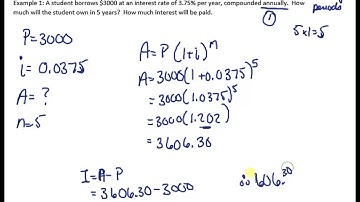 Example 1: A student borrows $3000 at an interest rate of 3.75% per year, compounded annually. How
much will the student own in 5 years? How much interest will be paid.
periods
①
5x1=5
P=3000
i=0.0375
A=?
n=5
A=P(1+i)^n
A=3000(1+0.0375)^5
=3000(1.0375)^5
=3000(1.202)
=3606.30
I=A-P
=3606.30-3000
∴ 606.30